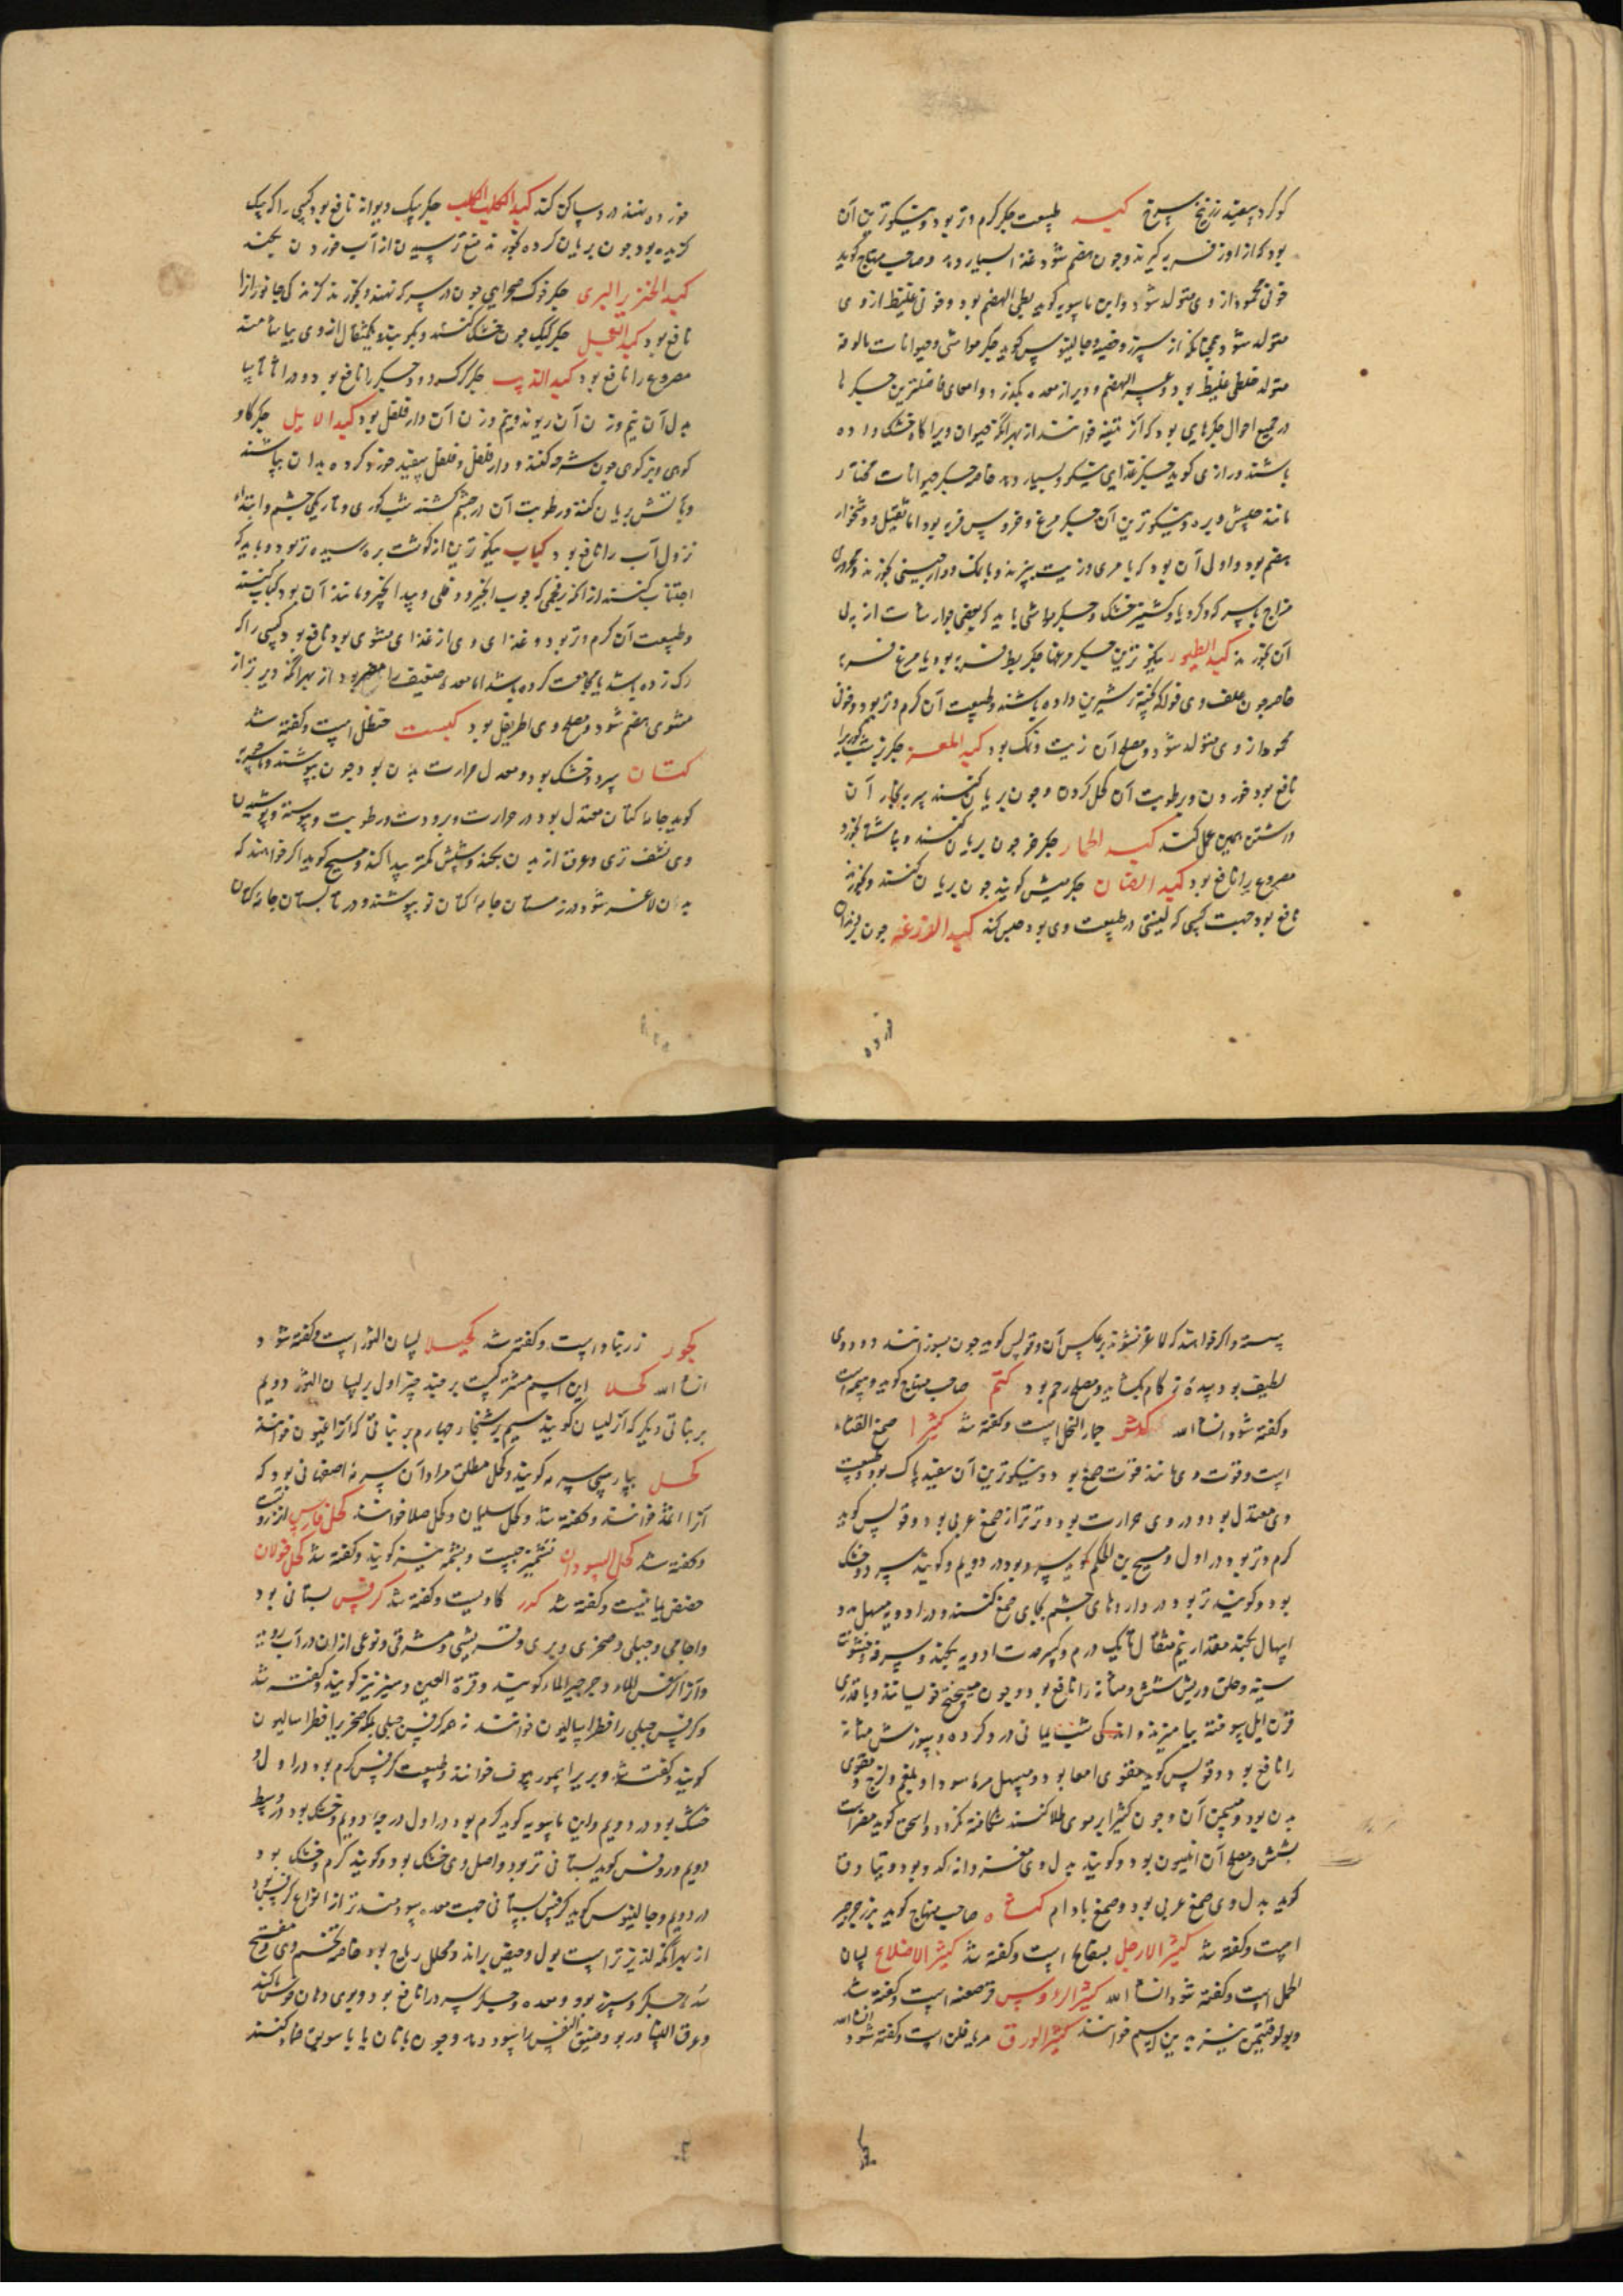 کوکرد سفید زرنیخ سرخ کبد طبیعت جکر کرم و تر بود و نیکوترین آن
بود که از اوز فربه کیرند و چون هضم شود غذا بسیار دهد و صاحب منهاج کوید
خونی محمود از وی متولد شود و ابن ماسویه کوید بطی الهضم بود و خونی غلیظ از وی
متولد شود و جالینوس کوید جکر مواشی و حیوانات مالوفه
متولد خلطی غلیظ بود و عسر الهضم و دیر از معده بکذرد و امعا و فاضلترین جکرها
در جمیع احوال جکرهایی بود که آنرا تینیه خوانند از بهر آنکه حیوان ویرا انجیر خشک داده
باشند و رازی کوید جکر غذایی نیکو بسیار دهد خاصه جکر حیوانات مختار
مانند میش و بره و نیکوترین آن جکر مرغ و خروس فربه بود اما ثقیل و دشخوار
هضم بود و اولی آن بود که با مری و زیت بپزند و با نمک و دارچینی بخورند و محروری
مزاج با سرکه و کرویا و کشنیز خشک و جکر مواشی باید که بعضی جوارشات از پی
آن بخورند کبد الطیور نیکوترین جکر مرغها جکر بط فربه بود یا مرغ فربه
خاصه چون علف وی فواکه پخته شیرین داده باشند و طبیعت آن کرم و تر بود و خون
محمود از وی متولد شود و مصلح آن زیت و نمک بود کبد المعز جکر بز شب کوری را
نافع بود خوردن و رطوبت آن کحل کردن و چون بریان کنند سر بر بخار آن
داشتن همین عمل کند کبد الحمار جکر خر چون بریان کنند و ناشتا بخورد
مصروع را نافع بود کبد الضان جکر میش کویند چون بریان کنند و بخورند
نافع بود جهت کسی که لینتی در طبیعت وی بود حبس کند کبد الوزغه چون بر دندان
خورده
خورده نهند درد ساکن کند کبد الکلب الکلب جکر سک دیوانه نافع بود کسی را که سک
کزیده بود چون بریان کرده بخورند منع ترسیدن از آب خوردن بکند
کبد الخنزیر البری جکر خوک صحرایی چون در سرکه نهند و بخورند کزندکی جانوران را
نافع بود کبد الحجل جکر کبک چون خشک کنند و بکوبند و یکمثقال از وی بیاشامند
مصروع را نافع بود کبد الذیب جکر کرک درد جکر را نافع بود و در اثاناسیا
بدل آن نیم وزن آن ریوند و نیم وزن آن دارفلفل بود کبد الایل جکر کاو
کوهی و بز کوهی چون شرحه کنند و دارفلفل و فلفل سفید خرد کرده بدان بپاشند
و بآتش بریان کنند و رطوبت آن در چشم کشند شب کوری و تاریکی چشم و ابتداء
نزول آب را نافع بود کباب نیکوترین از کوشت بره رسیده تر بود و باید که
اجتناب کنند از انکه بفحمی که چوب انجیر و دفلی و بیدانجیر و مانند آن بود کباب کنند
و طبیعت آن کرم و تر بود و غذای وی از غذای مشوی بود نافع بود کسی را که
رک زده باشد یا حجامت کرده باشد اما معده ضعیف را مضر بود از بهر آنکه دیرتر از
مشوی هضم شود و مصلح وی اطریفل بود کبست حنظل است و کفته شد
کتان سرد و خشک بود و معدل حرارت بدن بود چون بپوشند و
کوید جامه کتان معتدل بود در حرارت و برودت و رطوبت و یبوست و پوشیدن
وی نشف تری و عرق از بدن بکند و شپش کمتر پیدا کند و مسیح کوید اکر خواهند که
بدن لاغر شود در زمستان جامه کتان نو بپوشند و در تابستان جامه کتان
شسته و اکر خواهند که لاغر نشوند برعکس آن و قولس کوید چون بسوزانند دود وی
لطیف بود سده زکام بکشاید و مصلح رحم بود کتم صاحب منهاج کوید وسمه است
و کفته شود انشاء الله کثر جمار النخل است و کفته شد کثیرا صمغ القتاد
است و قوت وی مانند قوت صمغ بود و نیکوترین آن سفید پاک بود و طبیعت
وی معتدل بود و در وی حرارت بود و تر تر از صمغ عربی بود و قولس کوید
کرم و تر بود در اول و مسیح بن الحکم کوید سرد بود در دویم و کویند سرد و خشک
بود و کویند تر بود در داروهای چشم بجای صمغ کنند و در ادویه مسهل مدد
اسهال بکند مقدار نیم مثقال تا یک درم و کسر حدت ادویه بکند و سرفه و خشونت
سینه و حلق و ریش شش و مثانه را نافع بود و چون در میبختج خویسانند و با قدری
قرن ایل سوخته بیامیزند و اندکی شب یمانی درد کرده و سوزش مثانه
را نافع بود و قولس کوید مقوی امعا بود و مسهل مره سودا و بلغم و لزج و مقوی
بدن بود و مسمن آن و چون کثیرا بر موی طلا کنند شکافته نکردد و اسحق کوید مضر است
بشش و مصلح آن انیسون بود و کویند بدل وی مغز دانه کدو بود و بنادق
کوید بدل وی صمغ عربی بود و صمغ بادام کثاه صاحب منهاج کوید بزر جرجیر
است و کفته شد کثیر الارجل بسفایج است و کفته شد کثیر الاضلاع لسان
الحمل است و کفته شود انشاء الله کثیر الرؤس قرصعنه است و کفته شد
و بولوقنیمن نیز بدین اسم خوانند کثیر الورق مریافلن است و کفته شود انشاء الله
کجور
کجور زرنباد است و کفته شد کحیلا لسان الثور است و کفته شود
انشاء الله کحلا این اسم مشترکست بر چند چیز اول بر لسان الثور دویم
بر نباتی دیکر که آنرا لسان کویند سیم بر شنجار چهارم بر نباتی که آنرا افیون خوانند
کحل بپارسی سرمه کویند و کحل مطلق مراد آن سرمه اصفهانی بود که
آنرا اثمد خوانند و کفته شد و کحل سلیمان و کحل صلا خوانند کحل فارس انزروتست
و کفته شد کحل السودان تشمیزجست و بشمه نیز کویند و کفته شد کحل خولان
حضض یمانیست و کفته شد کدر کادیست و کفته شد کرفس بستانی بود
و اجامی و جبلی و صخری و بری و قریشی و مشرقی و نوعی از ان در آب روید
و آنرا کرفس الماء و جرجیر الماء کویند و قرة العین و سیر نیز کویند و کفته شد
و کرفس جبلی را فطراسالیون خوانند نه هر کرفس جبلی بلکه صخری را فطراسالیون
کویند و کفته شد و بری را سمورنیون خوانند و طبیعت کرفس کرم بود در اول و
خشک بود در دویم و ابن ماسویه کوید کرم بود در اول درجه دویم و خشک بود در وسط
دویم و روفس کوید بستانی تر بود و اصل وی خشک بود و کویند کرم و خشک بود
در دویم و جالینوس کوید کرفس بستانی جهت معده سودمندتر از انواع کرفس بود
از بهر آنکه لذیذتر است بول و حیض براند و محلل ریاح بود خاصه تخم وی و مفتح
سده جکر و سپرز بود و معده و جکر سرد را نافع بود و بوی دهان خوش کند
و عرق النسا و ربو و ضیق النفس را سود دهد و چون با نان یا با سویق ضماد کنند